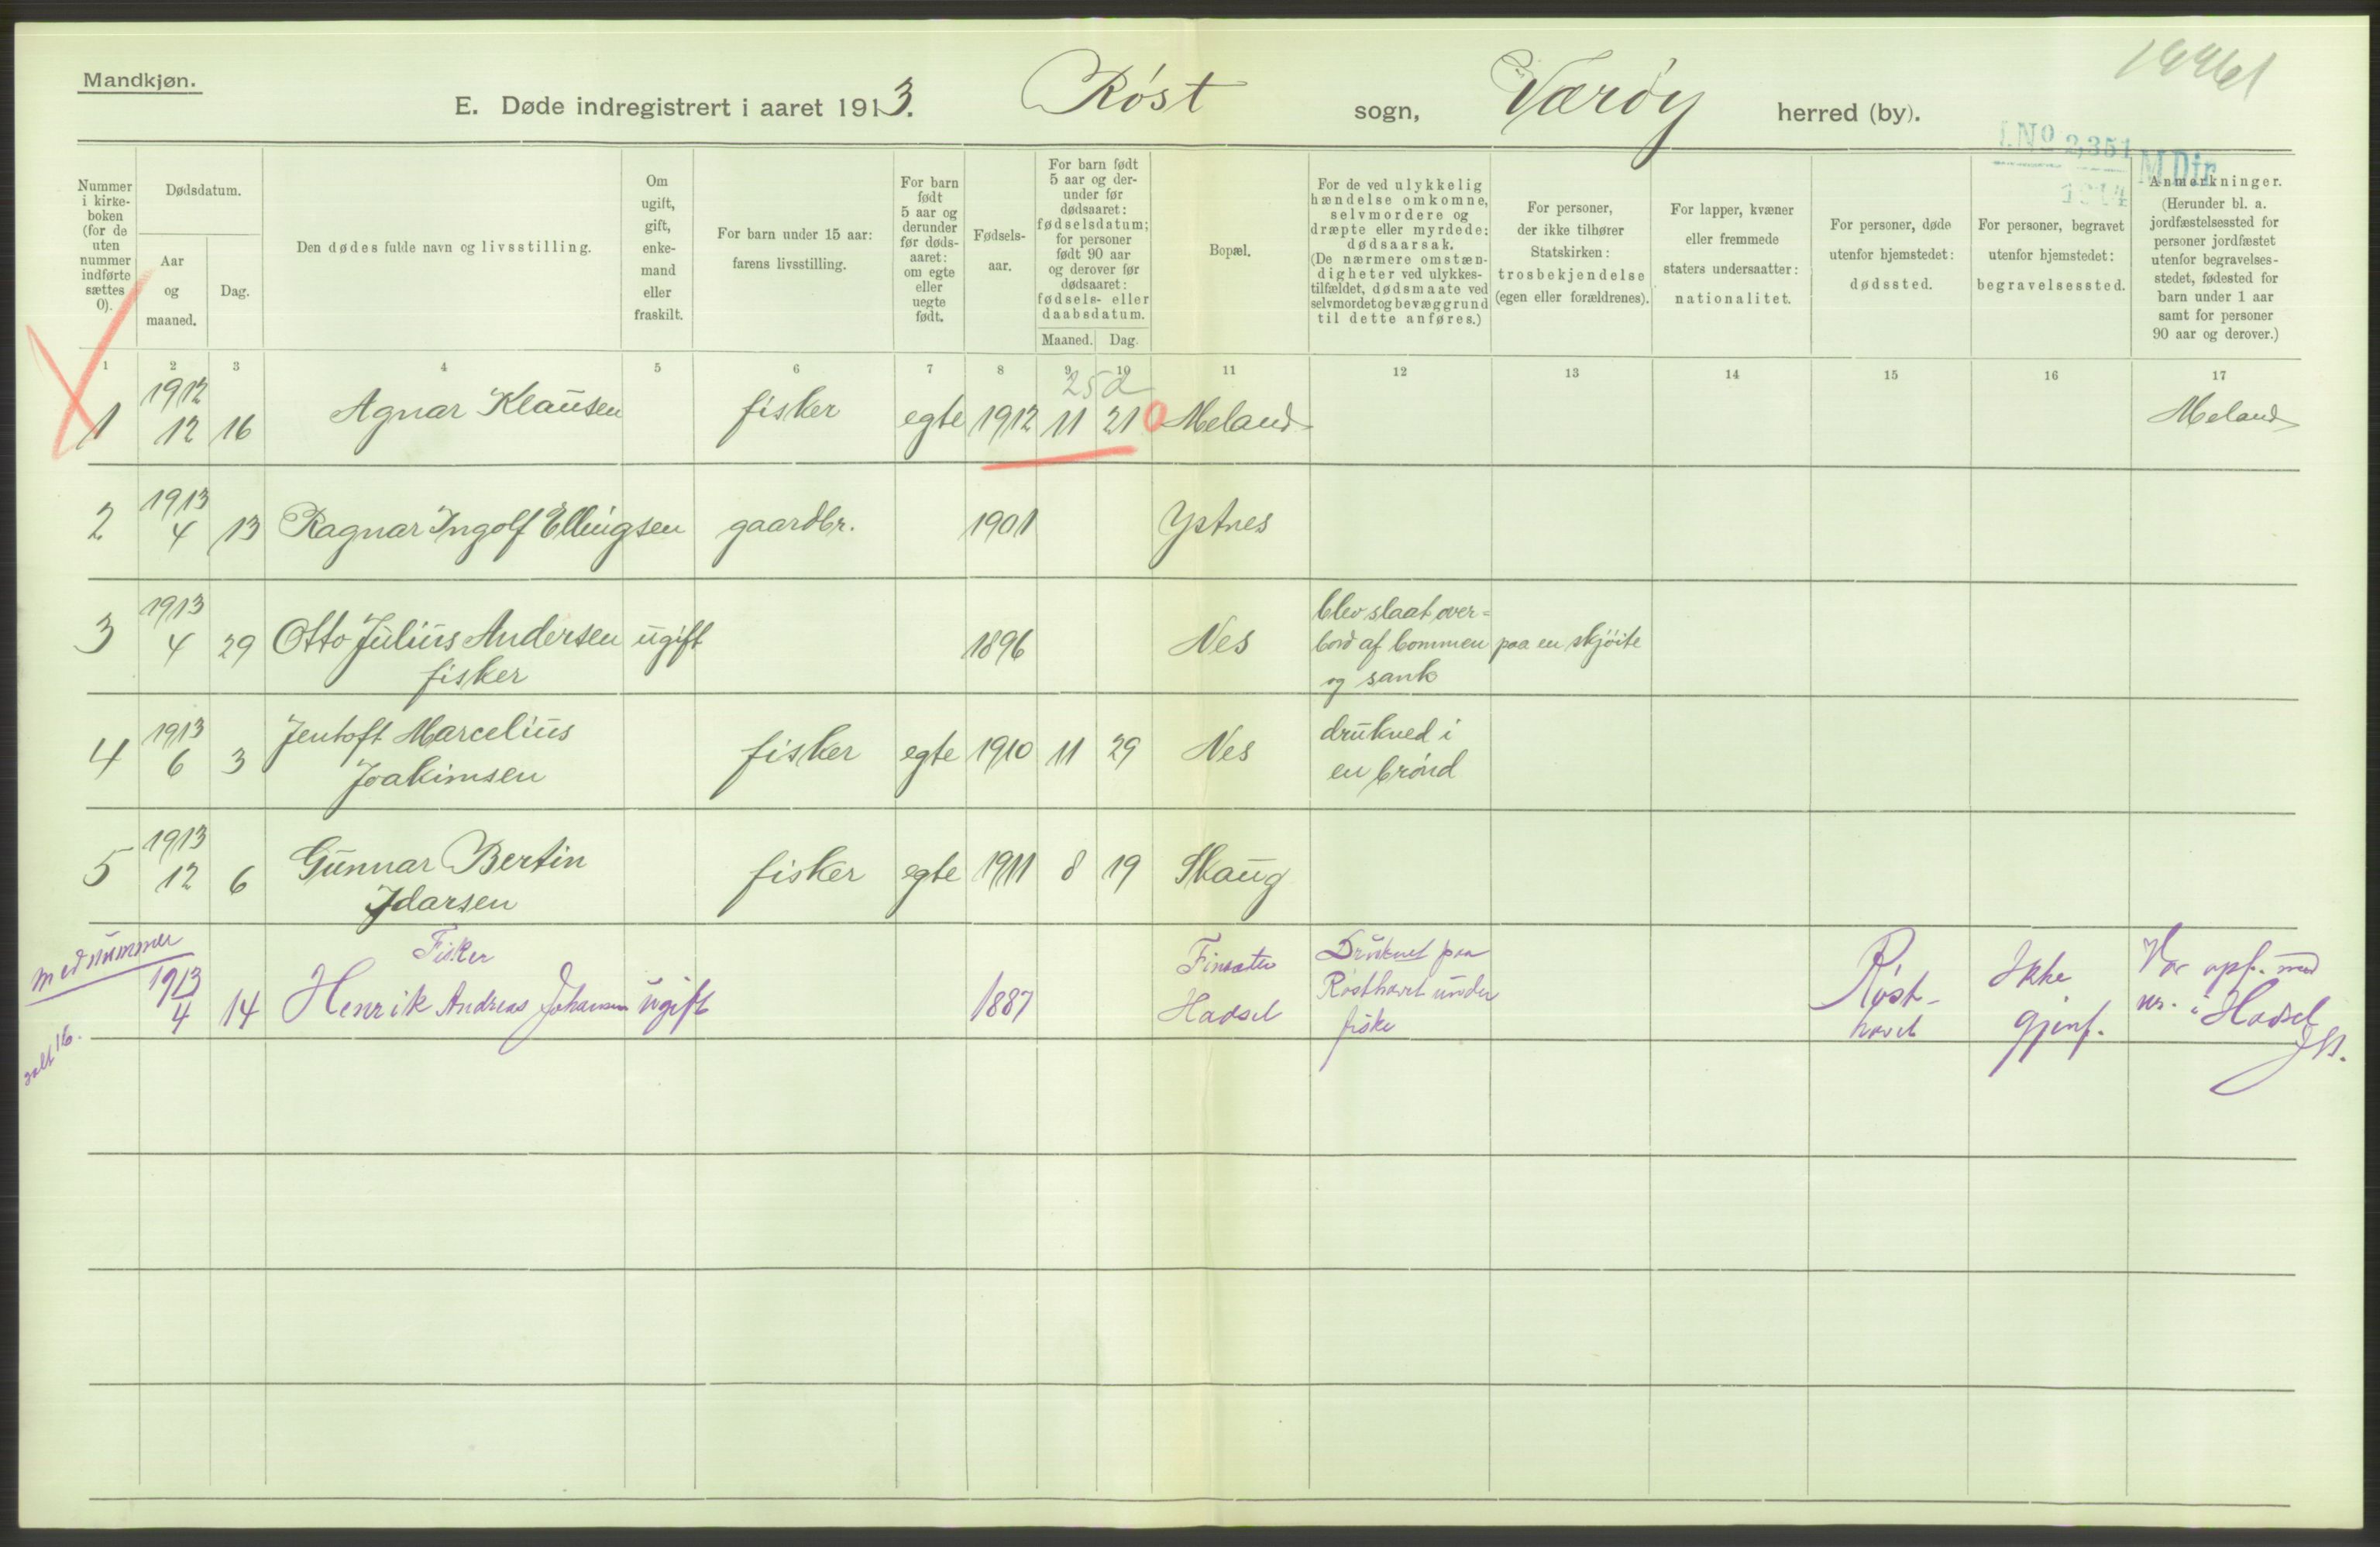 Mandkjøn.
E. Døde indregistrert i aaret 1913. Röst sogn, Værøy herred (by).
J.No 2,351 M Dir
1914
Nummer i kirke-boken (for de uten nummer indførte sættes 0).
Dødsdatum.
Aar og maaned.
Dag.
Den dødes fulde navn og livsstilling.
Om ugift, gift, enke-mand eller fraskilt.
For barn under 15 aar: farens livsstilling.
For barn født 5 aar og derunder før døds-aaret: om egte eller uegte født.
Fødsels-aar.
For barn født 5 aar og der-under før dødsaaret: fødselsdatum; for personer født 90 aar og derover før dødsaaret: fødsels- eller daabsdatum.
Maaned. Dag.
Bopæl.
For de ved ulykkelig hændelse omkomne, selvmordere og dræpte eller myrdede: dødsaarsak. (De nærmere omstæn-digheter ved ulykkes-tilfældet, dødsmaate ved selvmordet og bevæggrund til dette anføres.)
For personer, der ikke tilhører Statskirken: trosbekjendelse (egen eller forældrenes).
For lapper, kvæner eller fremmede staters undersaatter: nationalitet.
For personer, døde utenfor hjemstedet: dødssted.
For personer, begravet utenfor hjemstedet: begravelsessted.
Anmerkninger. (Herunder bl. a. jordfæstelsessted for personer jordfæstet utenfor begravelses-stedet, fødested for barn under 1 aar samt for personer 90 aar og derover.)
1 2 3 4 5 6 7 8 9 10 11 12 13 14 15 16 17
25 d
1 1912 12 16 Agnar Klausen fisker egte 1912 11 21 0 Meland Meland
2 1913 4 13 Ragnar Ingolf Ellingsen gaardbr. 1901 Ystnes
3 1913 4 29 Otto Julius Andersen ugift 1896 Nes
fisker
blev slaat over-
bord af bommen paa en skjöite
og sank
4 1913 6 3 Jentoft Marcelius
Joakimsen
fisker egte 1910 11 29 Nes
drukned i
en brönd
5 1913 12 6 Gunnar Bertin
Idarsen
fisker egte 1911 8 19 Skaug
med nummer
1913 4 14 Fisker
Henrik Andreas Johansen ugift 1887
Hadsel
Druknet paa
Rösthavet under
fiske
Röst-
havet
Ikke
gjenf.
Var opf. med
nr. i Hadsel